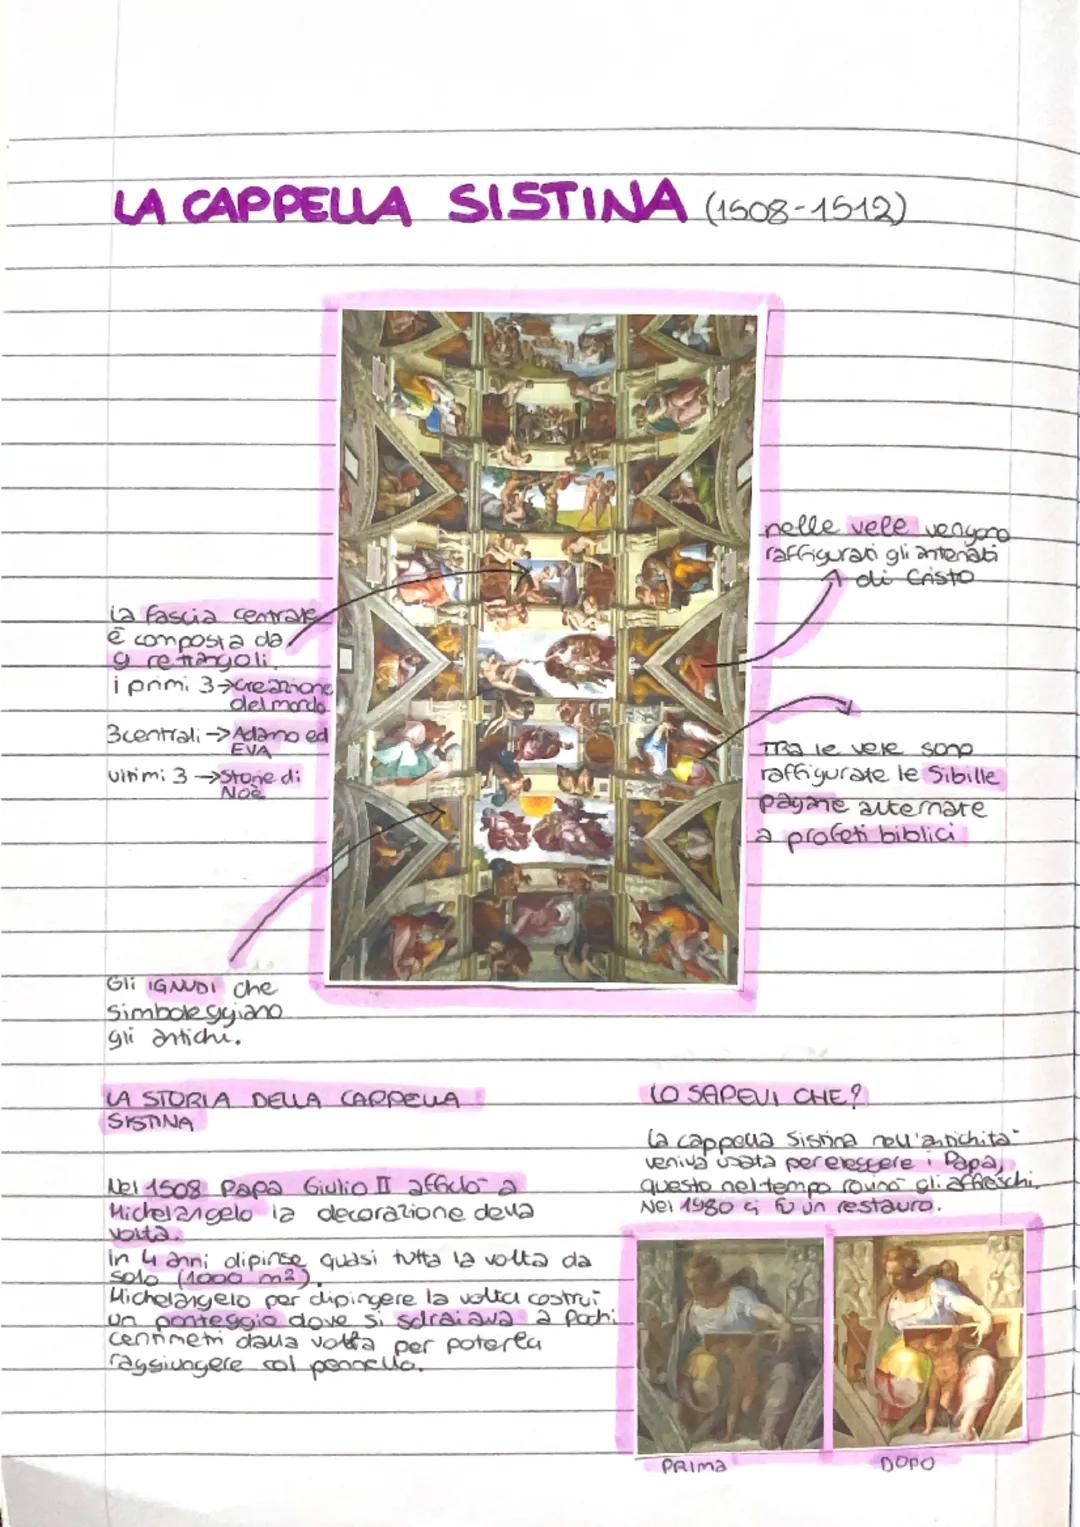 LA CAPPELLA SISTINA (1508-1512)
nelle vele vengono
raffigurati gli antenati
di Cristo
La fascia centrale
è composta da
9 rettangoli.
i primi 3→creazione
del mondo
3 centrali→Adamo ed
EVA
ultimi 3→Storie di
Noè
TRa le vele sono
raffigurate le Sibille
pagane alternate
a profeti biblici
Gli IGNUDI che
simboleggiano
gli antichi.
LA STORIA DELLA CAPPELLA
SISTINA
Nel 1508 Papa Giulio II affidò a
Michelangelo la decorazione della
volta.
in 4 anni dipinse quasi tutta la volta da
solo (1000 m2).
Michelangelo per dipingere la volta costruì
un ponteggio dove si sdraiava a pochi
centimetri dalla volta per poterla
raggiungere col pennello.
LO SAPEVI CHE?
La cappella Sistina nell'antichità
veniva usata per eleggere i Papa,
questo nel tempo rovinò gli affreschi.
Nel 1980 ci fu un restauro.
PRIMA
DOPO